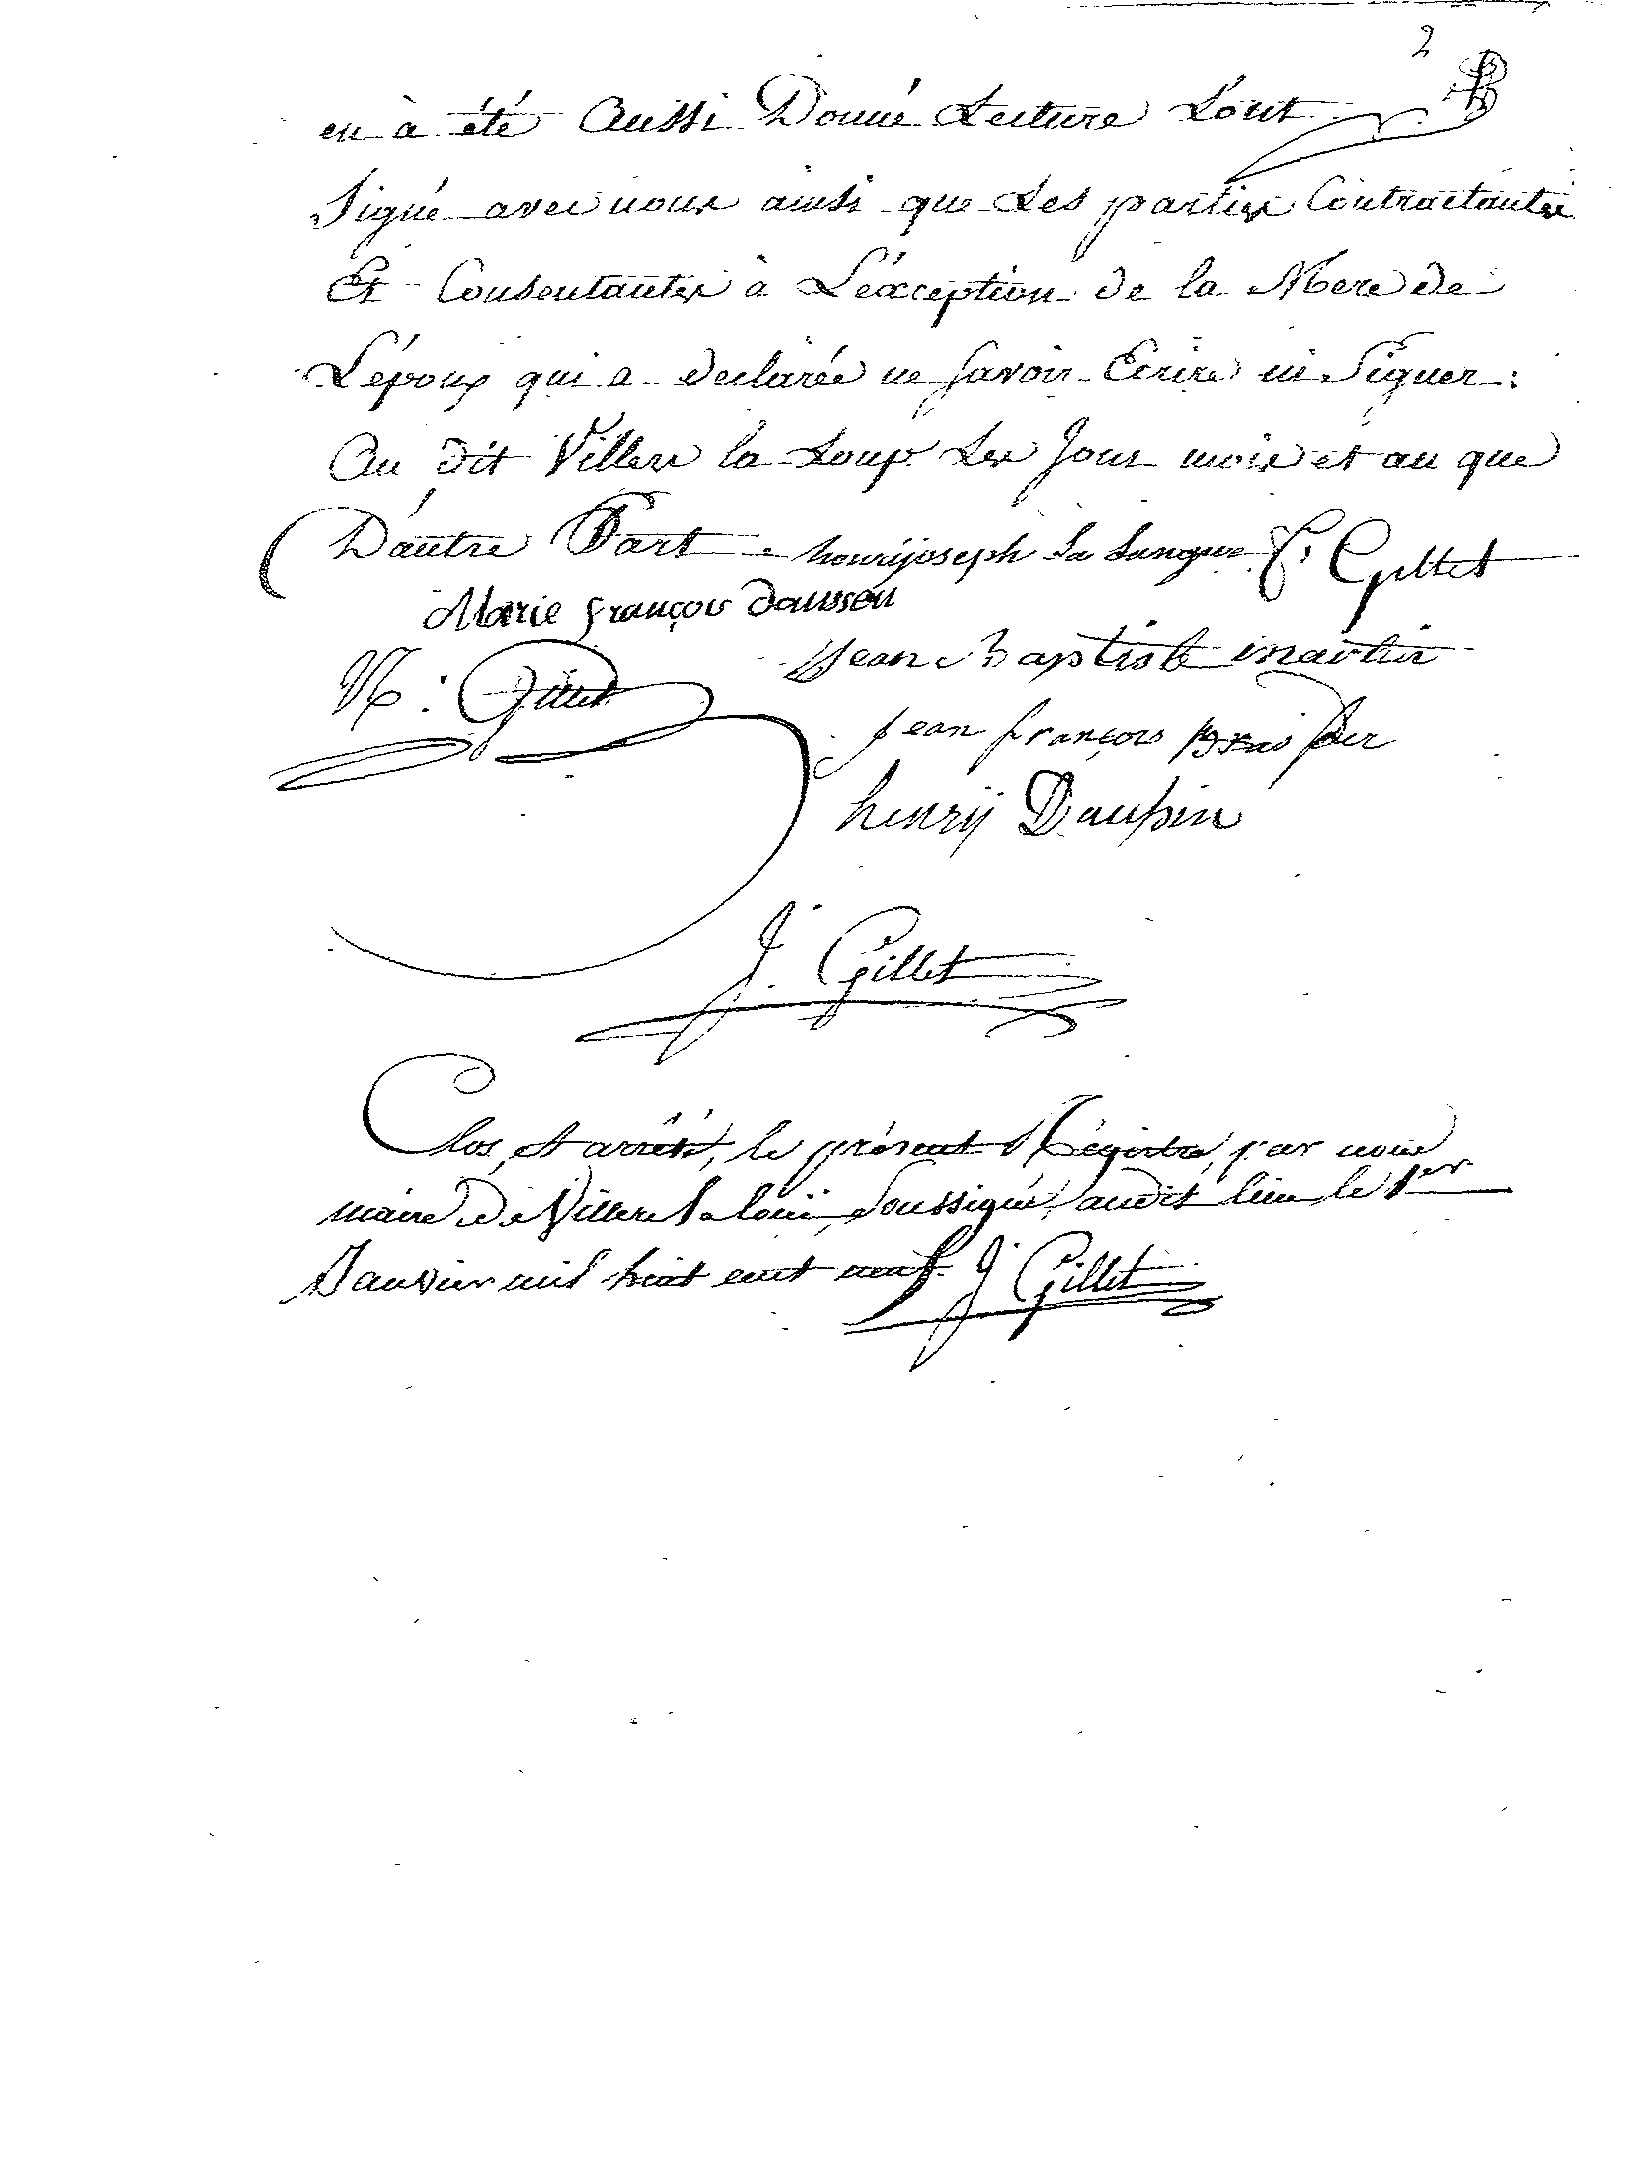 2
en à été Aussi Donné Lecture L'ont
Signé avec nous ainsi que Les parties Contractantes
Et Consentantes à L'éxception de la Mere de
L'époux qui a declarée ne savoir Ecrire ni Signer :
Au dit Villers la Loup Les Jour mois et an que
D'autre Part . henrijoseph La Langue F. Gillet
Marie françois daussen
Jean Baptiste martin
N : Gillet
jean françois
henrÿ Daupin
J. Gillet
Clos, et arrêté, le présent Régistre, par nous
maire De Villers la louü, Soussigné, audit lieu le 1er
Janvier mil huit cent neuf. J. Gillet